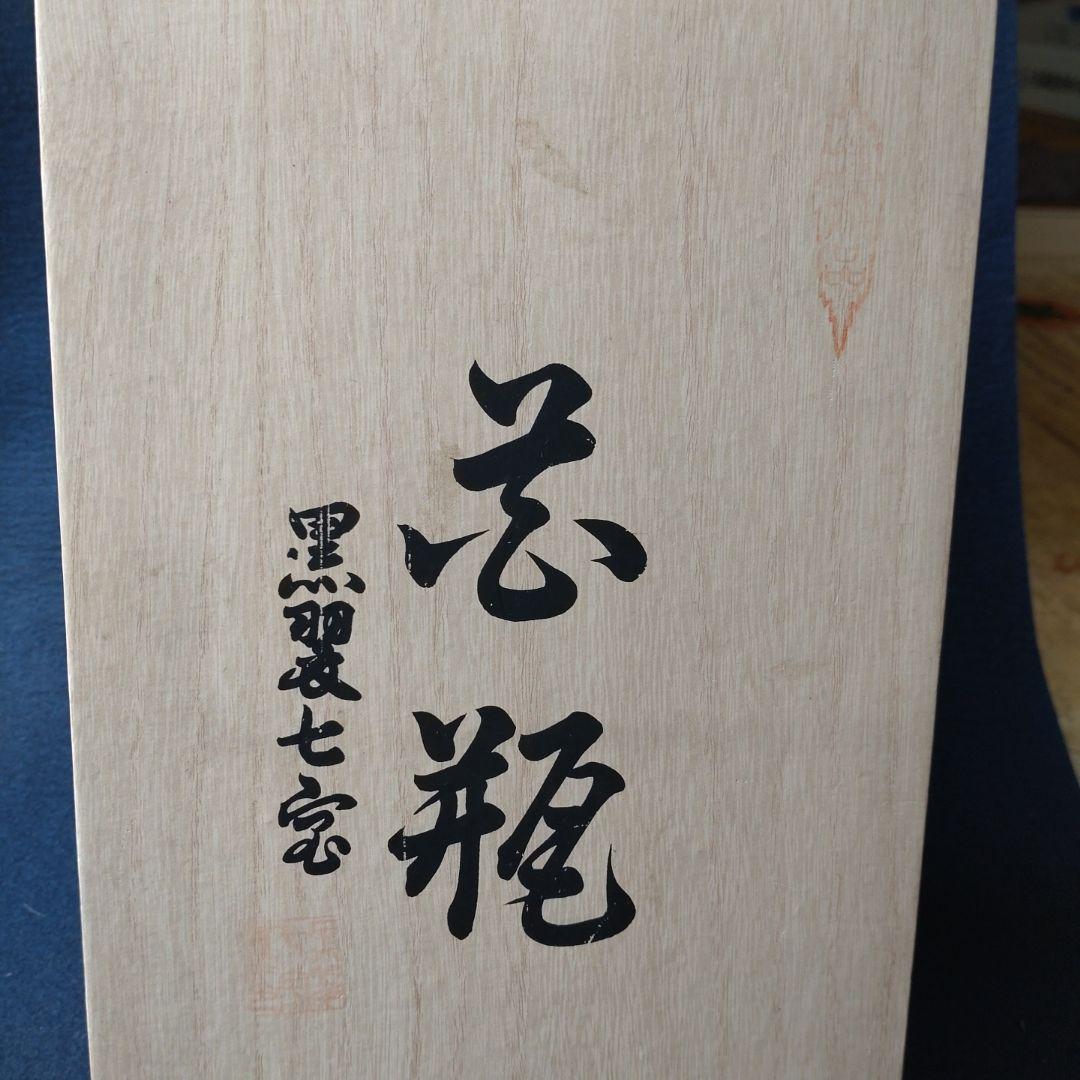 花瓶
黒翠七宝